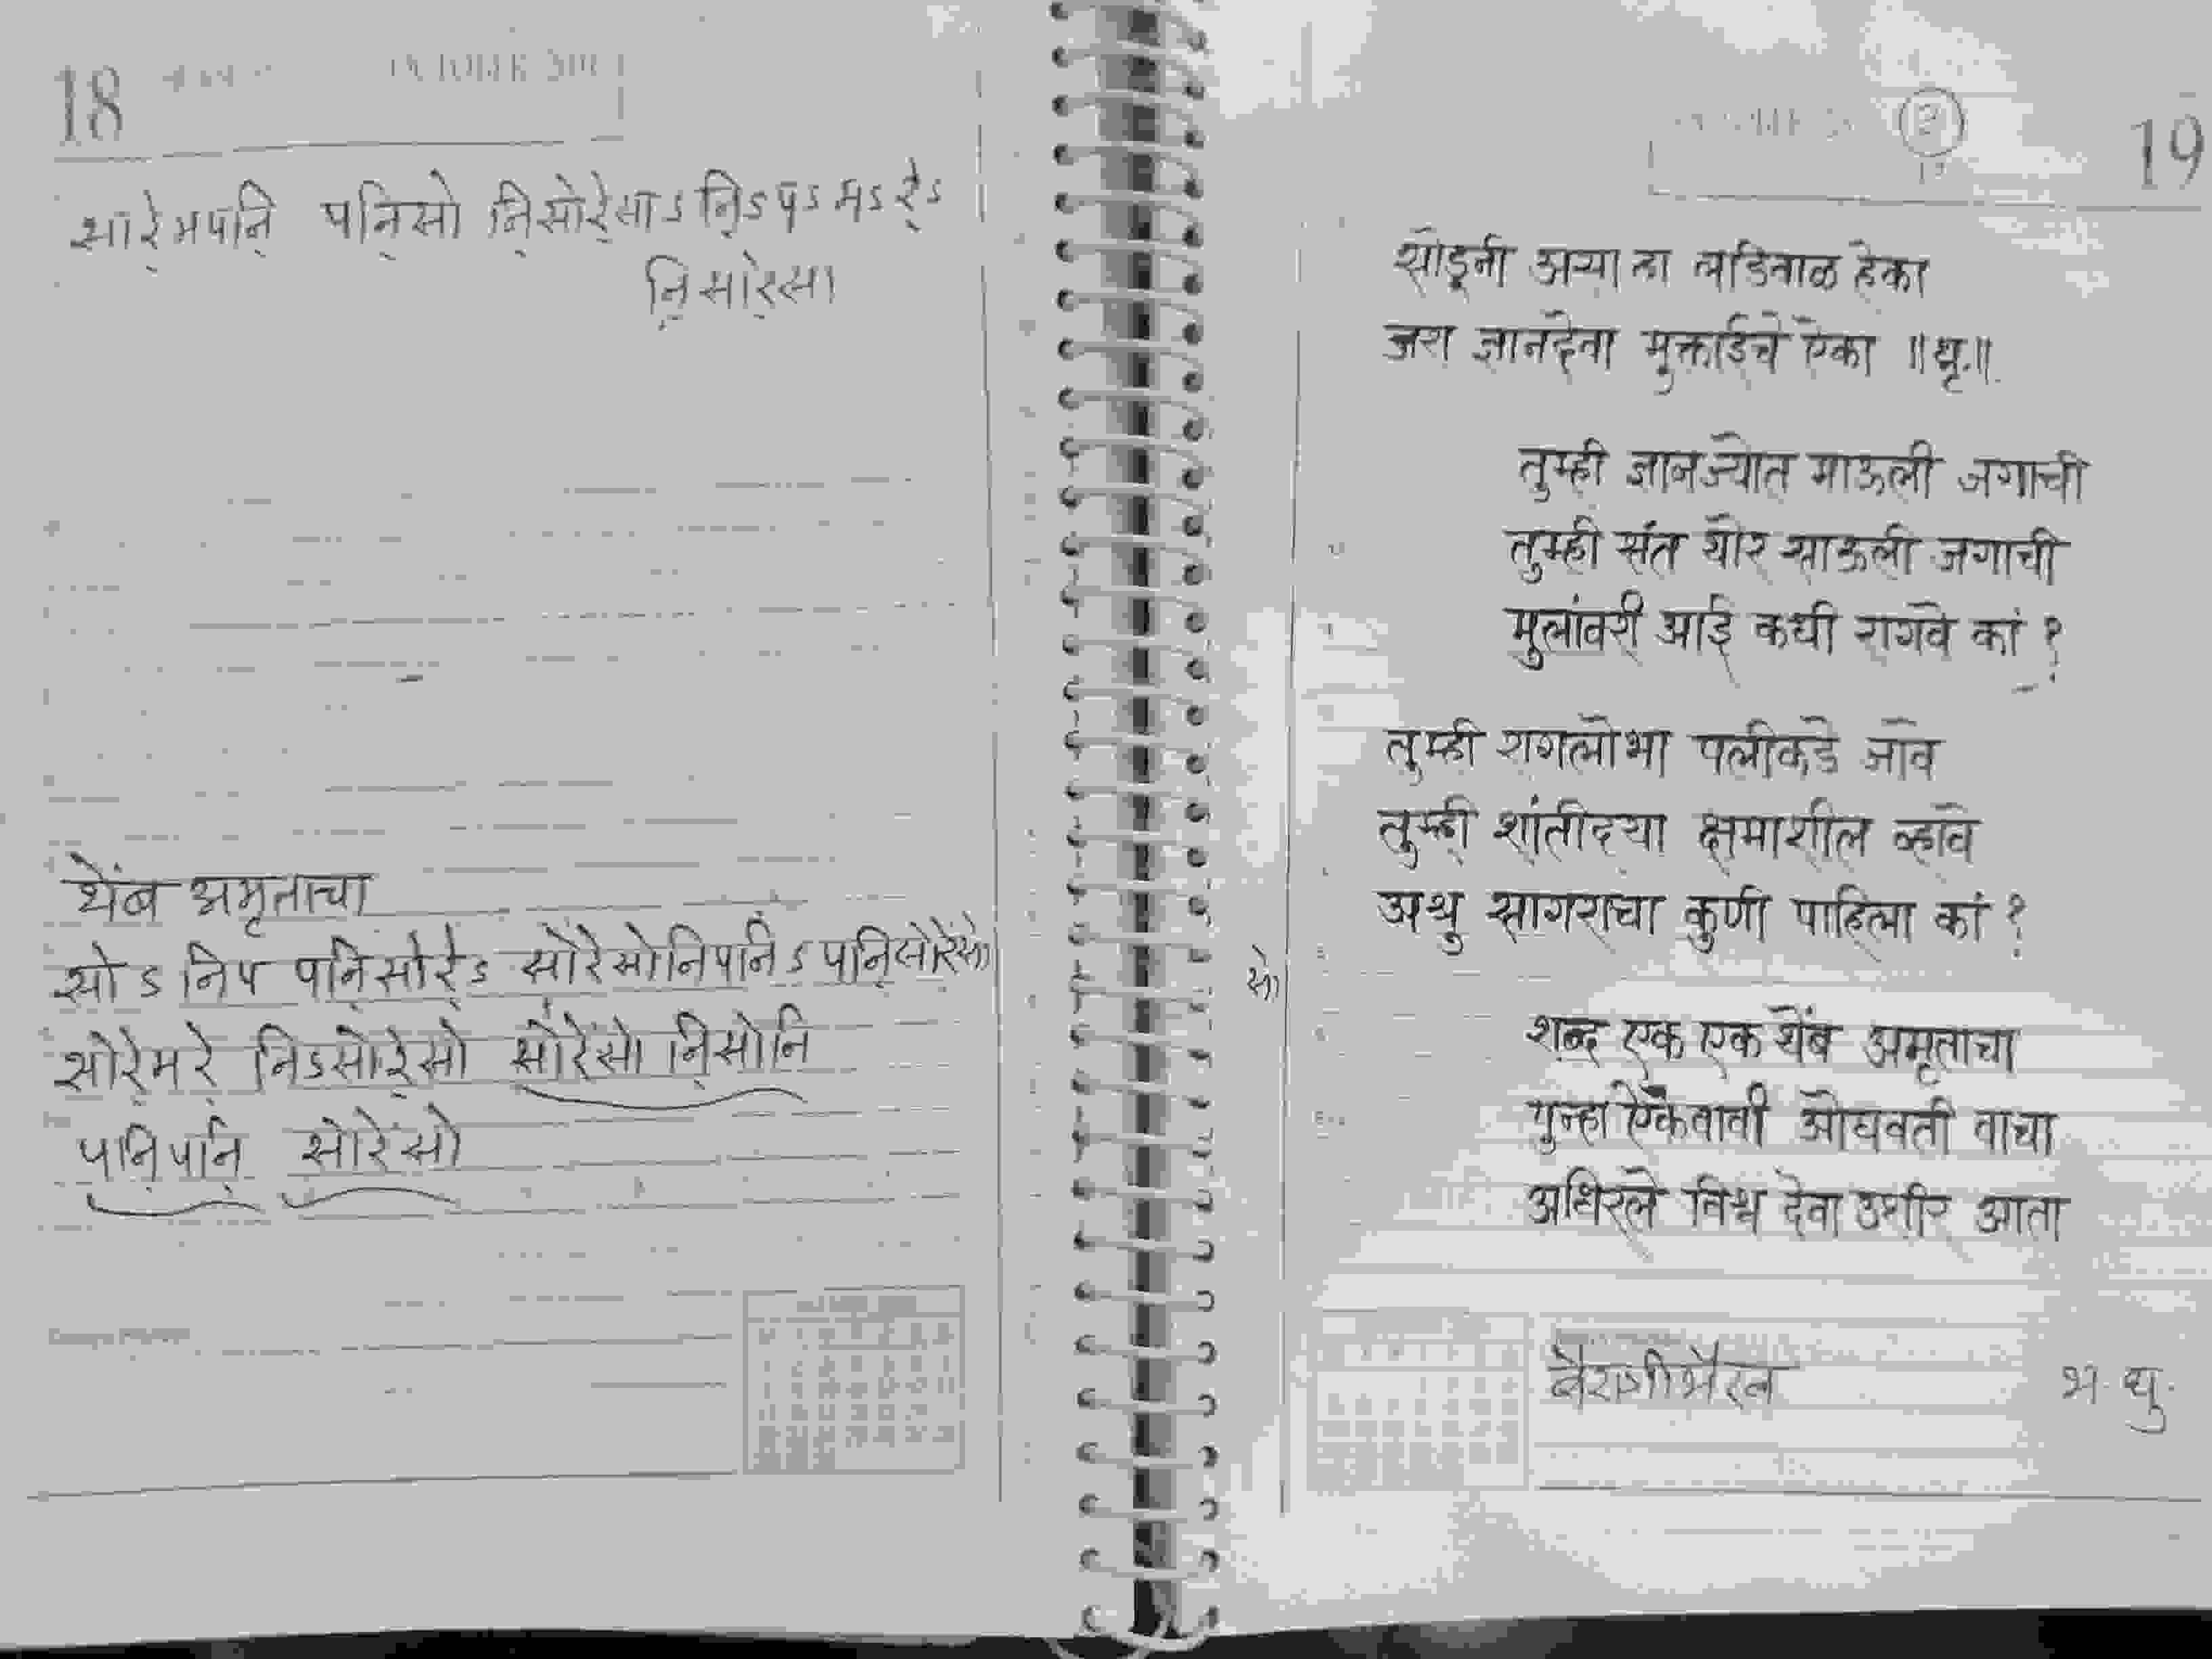 18
OCTOBER
सारे॒मपनि॒ पनि॒सां नि॒सांरे॒सांऽ नि॒ऽ पऽ मऽ रे॒ऽ
नि॒सारे॒सा
थेंब अमृताचा
सांऽ निप पनि॒सांरे॒ंऽ सांरें॒सांनिपनिऽ पनि॒सांरें॒सां
सांरें॒मंरें॒ निऽसांरें॒सां सांरें॒सां नि॒सांनि
पनि॒पनि॒ सांरेंसां
19
सोडूनी अच्या
हेका
जरा ज्ञानदेवा मुक्ताईचे ऐका ॥धृ.॥
तुम्ही ज्ञानज्योत माऊली जगाची
तुम्ही संत थोर साऊली जगाची
मुलांवरी आई कधी रागवे कां ?
तुम्ही रागलोभा पलीकडे जावे
तुम्ही शांतीदया क्षमाशील व्हावे
अश्रु सागराचा कुणी पाहिला कां ?
सां
शब्द एक एक थेंब अमृताचा
पुन्हा ऐकवावी ओघवती वाचा
अधिरले विश्व देवा उशीर आता
बैरागीभैरव भ. धु.